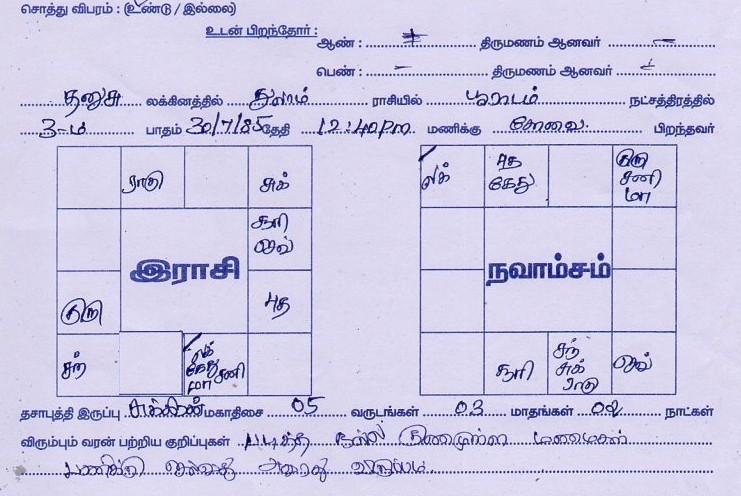 சொத்து விபரம் : (உண்டு / இல்லை)
உடன் பிறந்தோர் :
ஆண் : திருமணம் ஆனவர் –
பெண் : – திருமணம் ஆனவர்
தனுசு லக்கினத்தில் துலாம் ராசியில் பூராடம் நட்சத்திரத்தில்
3-ம் பாதம் 30/7/85 தேதி 12:40 pm மணிக்கு கோவை பிறந்தவர்
ராகு சுக்
சூரி
செவ்
இராசி
குரு புத
சந் லக் கேது சனி மா
லக் புத கேது குரு சனி மா
நவாம்சம்
சூரி சந் சுக் ராகு செவ்
தசாபுத்தி இருப்பு சுக்கிரன் மகாதிசை 05 வருடங்கள் 03 மாதங்கள் 02 நாட்கள்
விரும்பும் வரன் பற்றிய குறிப்புகள் படித்த நல்ல குணமுள்ள மணமகள்